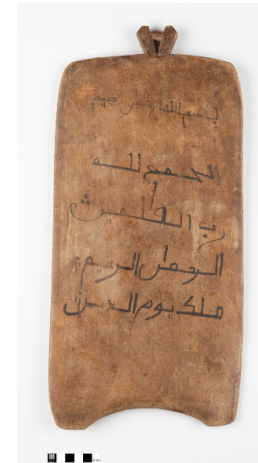 بسم الله الرحمن الرحيم
الحمد لله
رب العلمين
الرحمن الرحيم
ملك يوم الدين